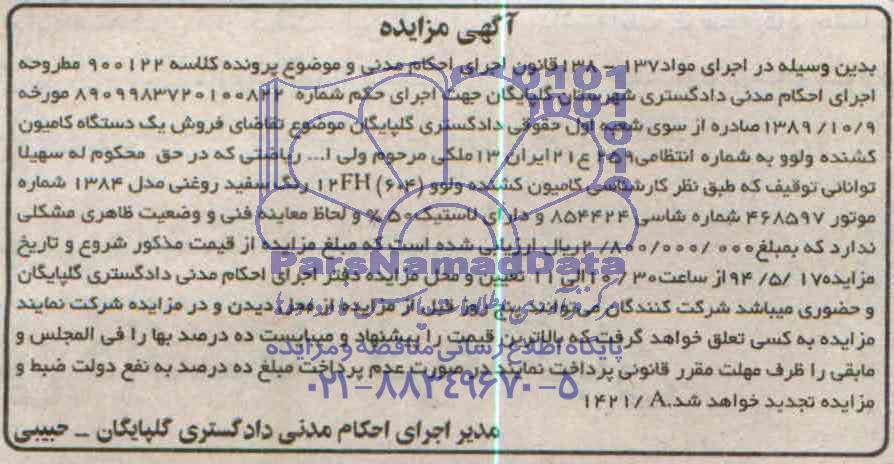 آگهی مزایده
بدین وسیله در اجرای مواد۱۳۷ – ۱۳۸قانون اجرای احکام مدنی و موضوع پرونده کلاسه ۹۰۰۱۲۲ مطروحه
اجرای احکام مدنی دادگستری شهرستان گلپایگان جهت اجرای حکم شماره ۸۹۰۹۹۸۳۷۲۰۱۰۰۸۲۲ مورخه
۱۳۸۹/۱۰/۹صادره از سوی شعبه اول حقوقی دادگستری گلپایگان موضوع تقاضای فروش یک دستگاه کامیون
کشنده ولوو به شماره انتظامی۲۵۹ع۲۱ایران ۱۳ملکی مرحوم ولی ا... ریاضتی که در حق محکوم له سهیلا
توانائی توقیف که طبق نظر کارشناسی کامیون کشنده ولوو (۶۰۴) ۱۲FH رنگ سفید روغنی مدل ۱۳۸۴ شماره
موتور ۴۶۸۵۹۷ شماره شاسی ۸۵۴۴۲۴ و دارای لاستیک۵۰ % و لحاظ معاینه فنی و وضعیت ظاهری مشکلی
ندارد که بمبلغ۲/۸۰۰/۰۰۰/۰۰۰ریال ارزیابی شده است که مبلغ مزایده از قیمت مذکور شروع و تاریخ
مزایده۹۴/۵/۱۷از ساعت۱۰/۳۰الی ۱۱ تعیین و محل مزایده دفتر اجرای احکام مدنی دادگستری گلپایگان
و حضوری میباشد شرکت کنندگان می‌توانند پنج روز قبل از مزایده از محل دیدن و در مزایده شرکت نمایند
مزایده به کسی تعلق خواهد گرفت که بالاترین قیمت را پیشنهاد و میبایست ده درصد بها را فی المجلس و
مابقی را ظرف مهلت مقرر قانونی پرداخت نمایند در صورت عدم پرداخت مبلغ ده درصد به نفع دولت ضبط و
مزایده تجدید خواهد شد.۱۴۲۱/A
مدیر اجرای احکام مدنی دادگستری گلپایگان – حبیبی
ParsNamadData
پایگاه اطلاع رسانی مناقصه و مزایده
۰۲۱-۸۸۳۴۹۶۷۰-۵